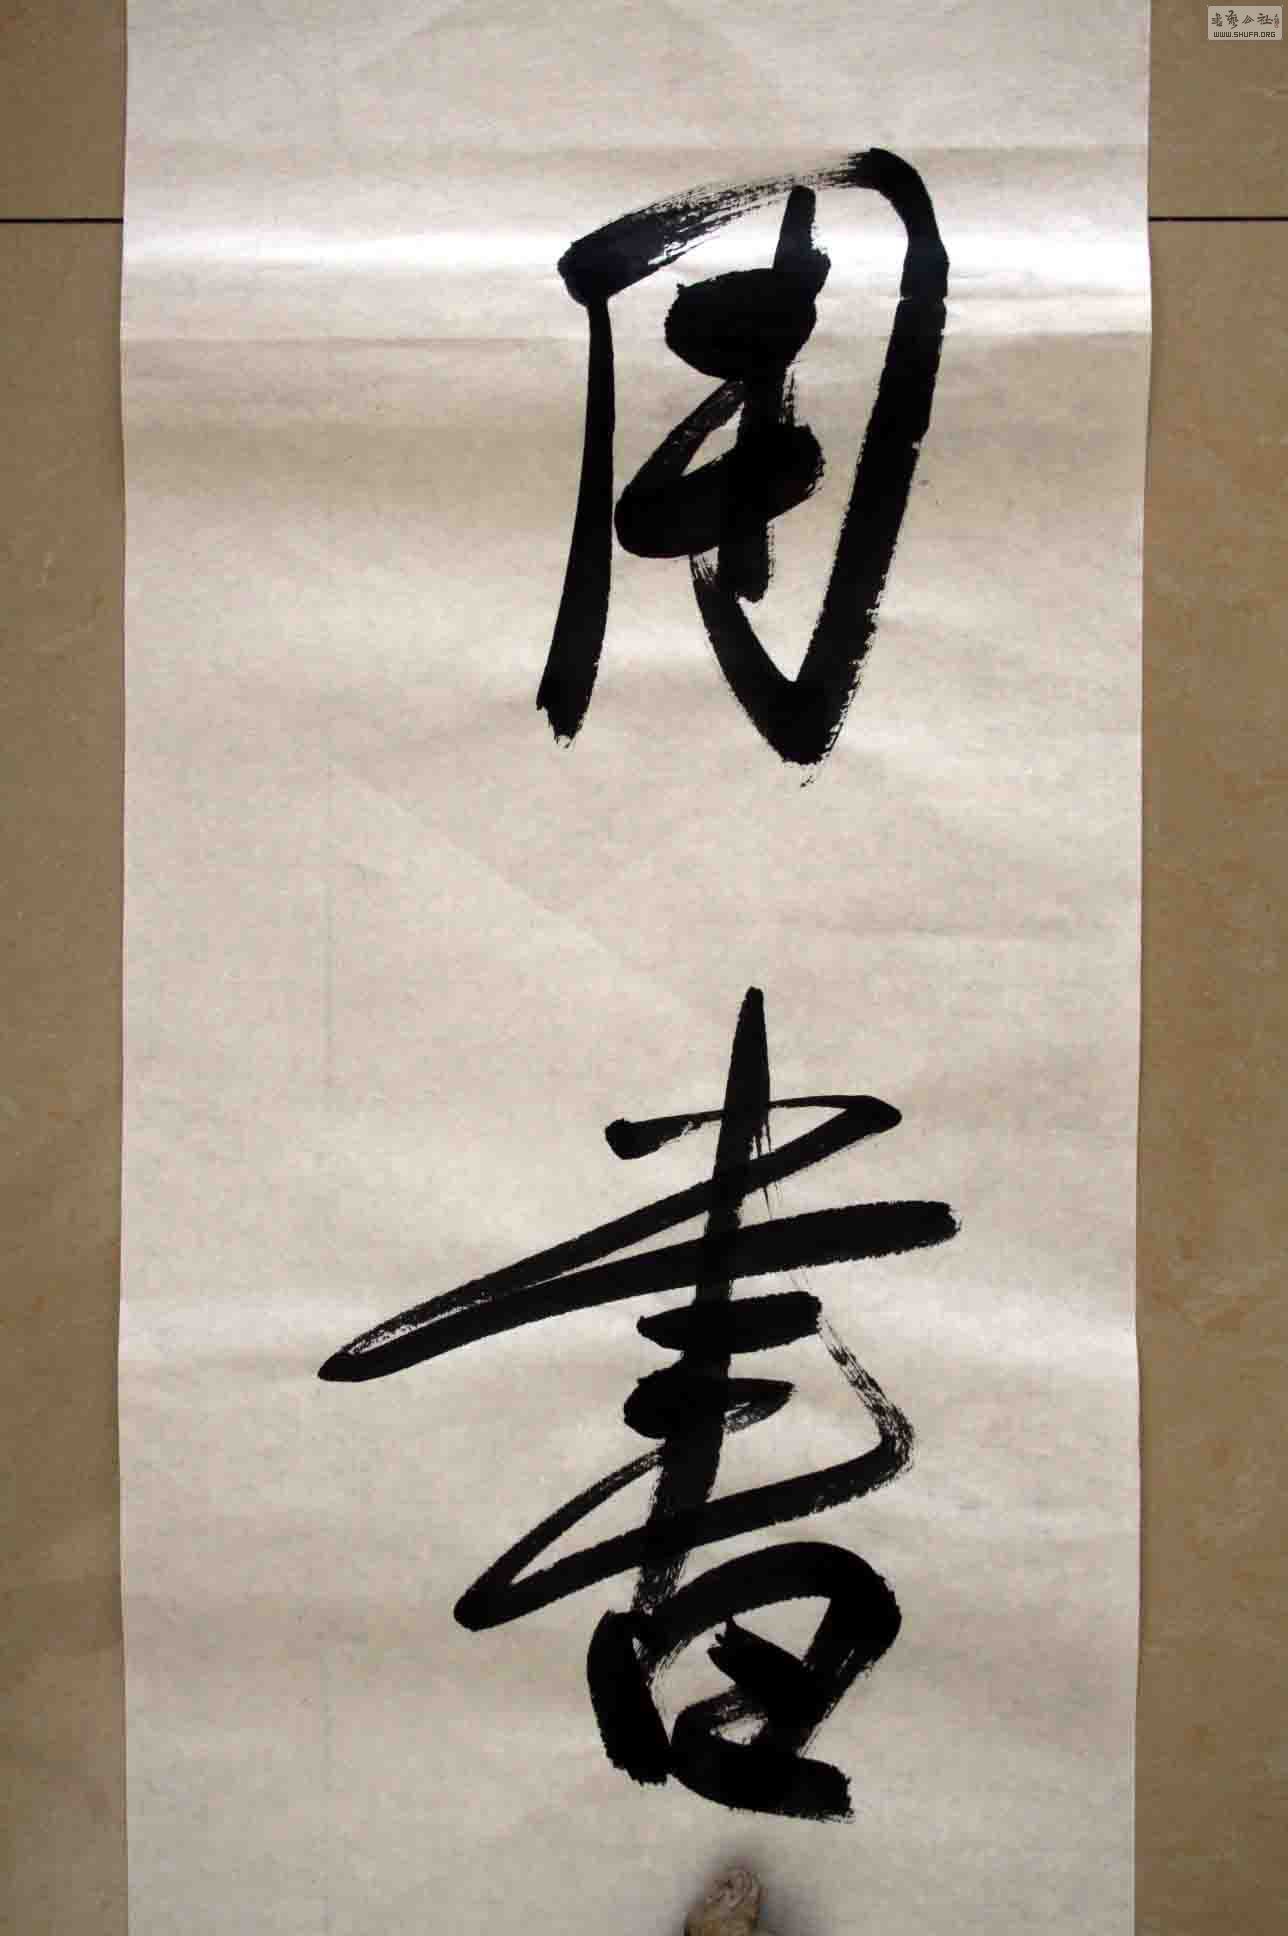 书艺公社
WWW.SHUFA.ORG
用
書